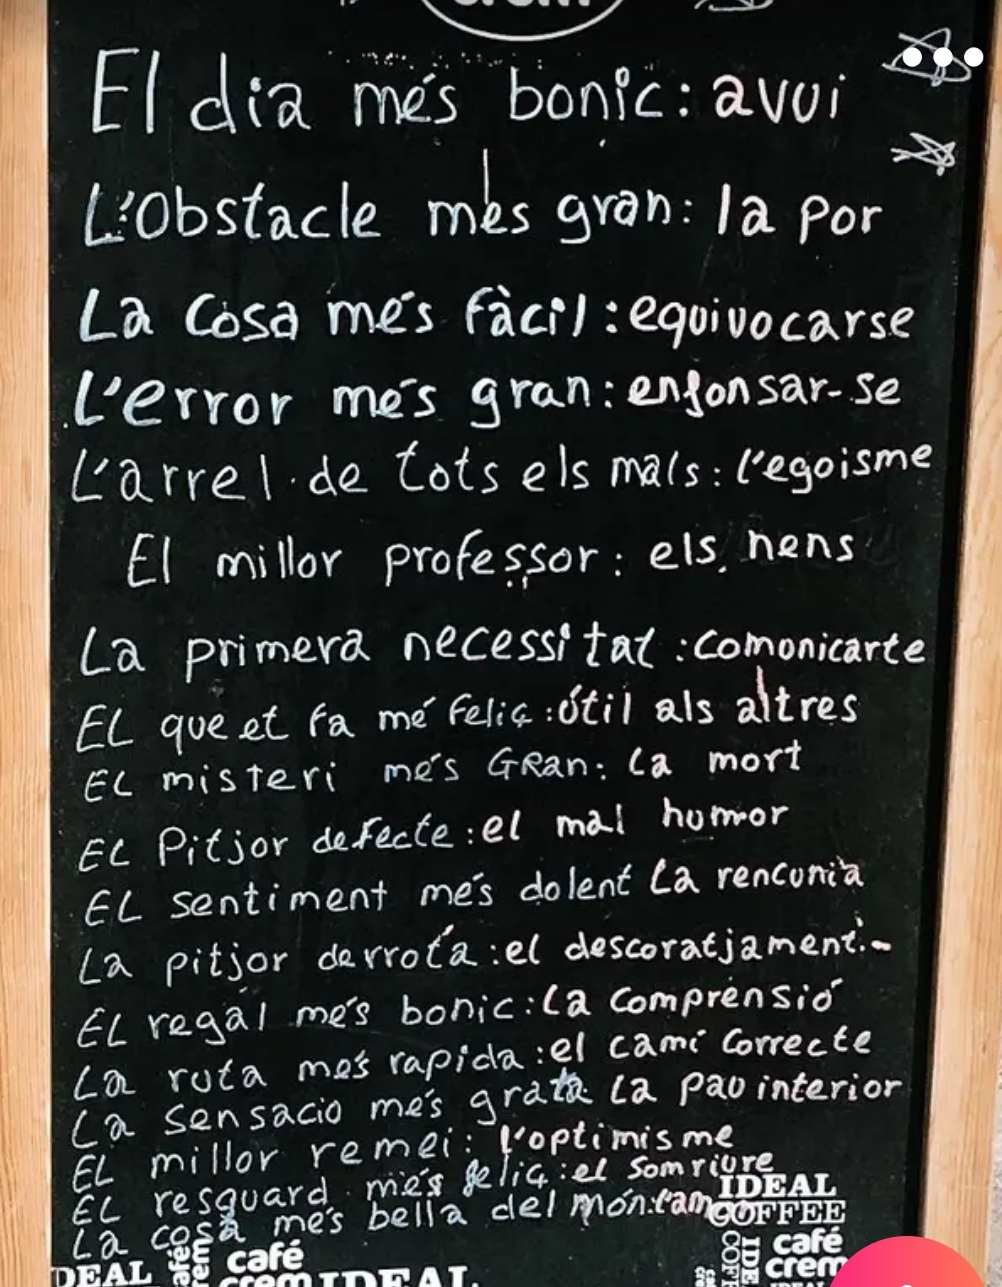 El dia més bonic: avui
L'Obstacle més gran: la por
La Cosa més fàcil: equivocarse
L'error més gran: enfonsar-se
L'arrel de tots els mals: l'egoisme
El millor professor: els nens
La primera necessitat: comonicarte
EL que et fa mé feliç: útil als altres
EL misteri més GRan: La mort
EL Pitjor defecte: el mal humor
EL sentiment més dolent La rencunià
La pitjor derrota: el descoratjament.
EL regal més bonic: La Comprensió
La ruta més rapida: el camí Correcte
La sensacio més grata La pau interior
EL millor remei: l'optimisme
EL resguard més feliç: el somriure
La cosa més bella del món:
IDEAL
COFFEE
café
crem
café
crem
IDEAL